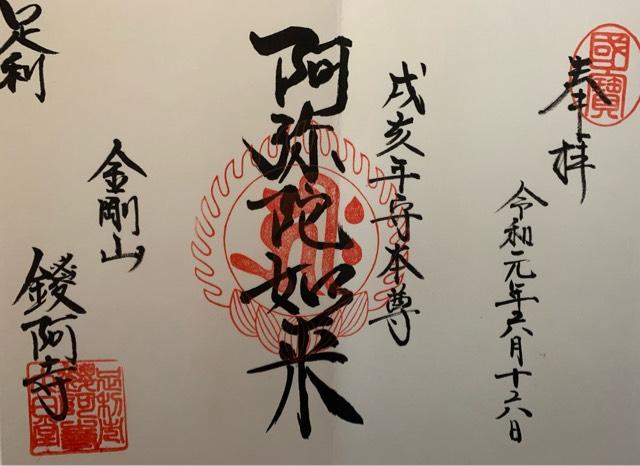 國寶
奉拝
令和元年六月十六日
戌亥年守本尊
阿弥陀如来
足利
金剛山
鑁阿寺